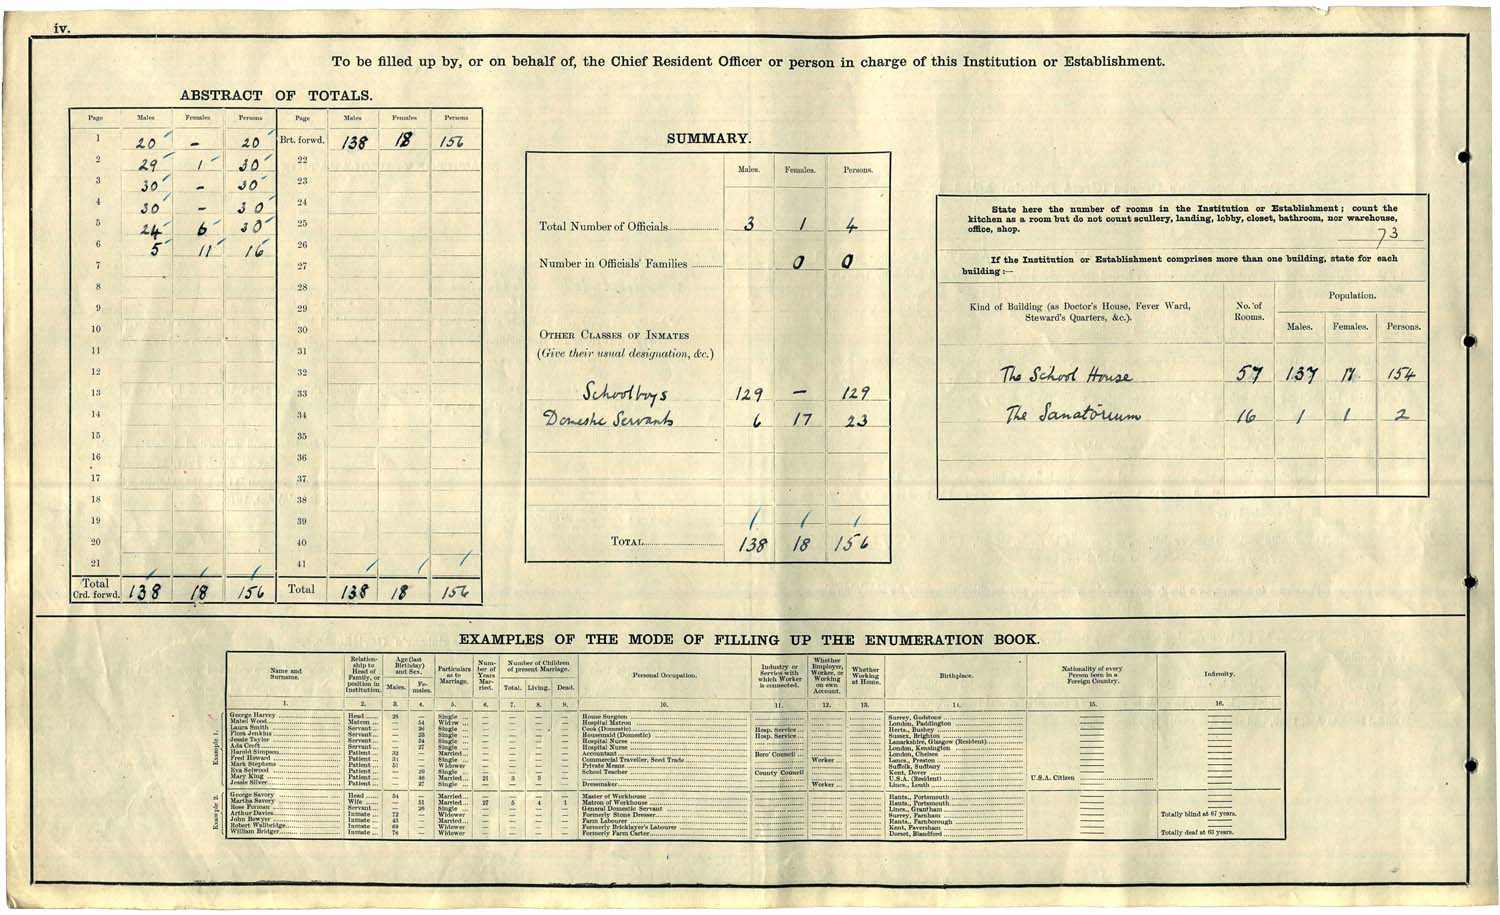 iv.
To be filled up by, or on behalf of, the Chief Resident Officer or person in charge of this Institution or Establishment.
ABSTRACT OF TOTALS.
Page Males Females Persons Page Males Females Persons
1 20 - 20 Brt. forwd. 138 18 156
2 29 1 30 22
3 30 - 30 23
4 30 - 30 24
5 24 6 30 25
6 5 11 16 26
7 27
8 28
9 29
10 30
11 31
12 32
13 33
14 34
15 35
16 36
17 37
18 38
19 39
20 40
21 41
Total Crd. forwd. 138 18 156 Total 138 18 156
SUMMARY.
Males. Females. Persons.
Total Number of Officials 3 1 4
Number in Officials' Families 0 0
OTHER CLASSES OF INMATES
(Give their usual designation, &c.)
Schoolboys 129 - 129
Domestic Servants 6 17 23
TOTAL 138 18 156
State here the number of rooms in the Institution or Establishment; count the
kitchen as a room but do not count scullery, landing, lobby, closet, bathroom, nor warehouse,
office, shop. 73
If the Institution or Establishment comprises more than one building, state for each
building:—
Kind of Building (as Doctor's House, Fever Ward, Steward's Quarters, &c.). No. of Rooms. Population.
Males. Females. Persons.
The School House 57 137 17 154
The Sanatorium 16 1 1 2
EXAMPLES OF THE MODE OF FILLING UP THE ENUMERATION BOOK.
Name and Surname. Relationship to Head of Family, or position in Institution. Age (last Birthday) and Sex. Males. Females. Particulars as to Marriage. Number of Years Married. Number of Children of present Marriage. Total. Living. Dead. Personal Occupation. Industry or Service with which Worker is connected. Whether Employer, Worker, or Working on own Account. Whether Working at Home. Birthplace. Nationality of every Person born in a Foreign Country. Infirmity.
1. 2. 3. 4. 5. 6. 7. 8. 9. 10. 11. 12. 13. 14. 15. 16.
Example 1.
George Harvey Head 28 — Single — — — — House Surgeon Surrey, Godstone
Mabel Wood Matron — 54 Widow — — — — Hospital Matron London, Paddington
Laura Smith Servant — 26 Single — — — — Cook (Domestic) Hosp. Service Herts., Bushey
Flora Jenkins Servant — 23 Single — — — — Housemaid (Domestic) Hosp. Service Sussex, Brighton
Jessie Taylor Servant — 24 Single — — — — Hospital Nurse Lanarkshire, Glasgow (Resident)
Ada Croft Servant — 27 Single — — — — Hospital Nurse London, Kensington
Harold Simpson Patient 32 — Married — — — — Accountant Boro' Council London, Chelsea
Fred Howard Patient 31 — Single — — — — Commercial Traveller, Seed Trade Worker Lancs., Preston
Mark Stephens Patient 51 — Widower — — — — Private Means Suffolk, Sudbury
Eva Selwood Patient — 20 Single — — — — School Teacher County Council Kent, Dover
Mary King Patient — 46 Married 21 3 3 — U.S.A. (Resident) U.S.A. Citizen
Jessie Silver Patient — 27 Single — — — — Dressmaker Worker Lincs., Louth
Example 2.
George Savory Head 54 — Married — — — — Master of Workhouse Hants., Portsmouth
Martha Savory Wife — 51 Married 27 5 4 1 Matron of Workhouse Hants., Portsmouth
Rose Forman Servant — 26 Single — — — — General Domestic Servant Lincs., Grantham
Arthur Davies Inmate 72 — Widower — — — — Formerly Stone Dresser Surrey, Farnham Totally blind at 67 years.
John Bowyer Inmate 43 — Married — — — — Farm Labourer Hants., Farnborough
Robert Wallbridge Inmate 69 — Widower — — — — Formerly Bricklayer's Labourer Kent, Faversham
William Bridger Inmate 76 — Widower — — — — Formerly Farm Carter Dorset, Blandford Totally deaf at 63 years.